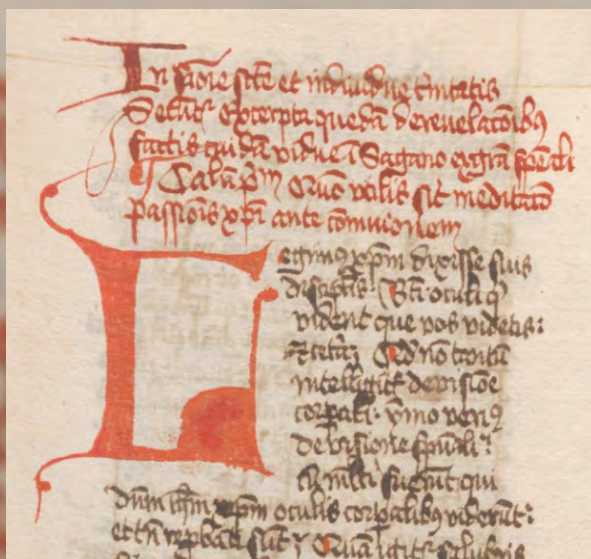 In noīe scē et indiuidue t'nitatis
Secūt' excerpta quedā de reuelacōibꝰ
factis cuidā vidue ī Sagano ex grā spēali
Caplm pm Quō vtilis sit meditacō
passiōis xpī ante cōmuionem
Legimꝰ xpm dixisse suis
discipl'is Bti oculi q'
vident que vos videtis:
⁊ceta Qd nō tm̄
intelligit' de visiōe
corpali. ymo veriꝰ
de visione spūali:
multi fuer̄t qui
dūm xpm oculis corpalibꝰ viderūt:
et tn̄ repbati sūt